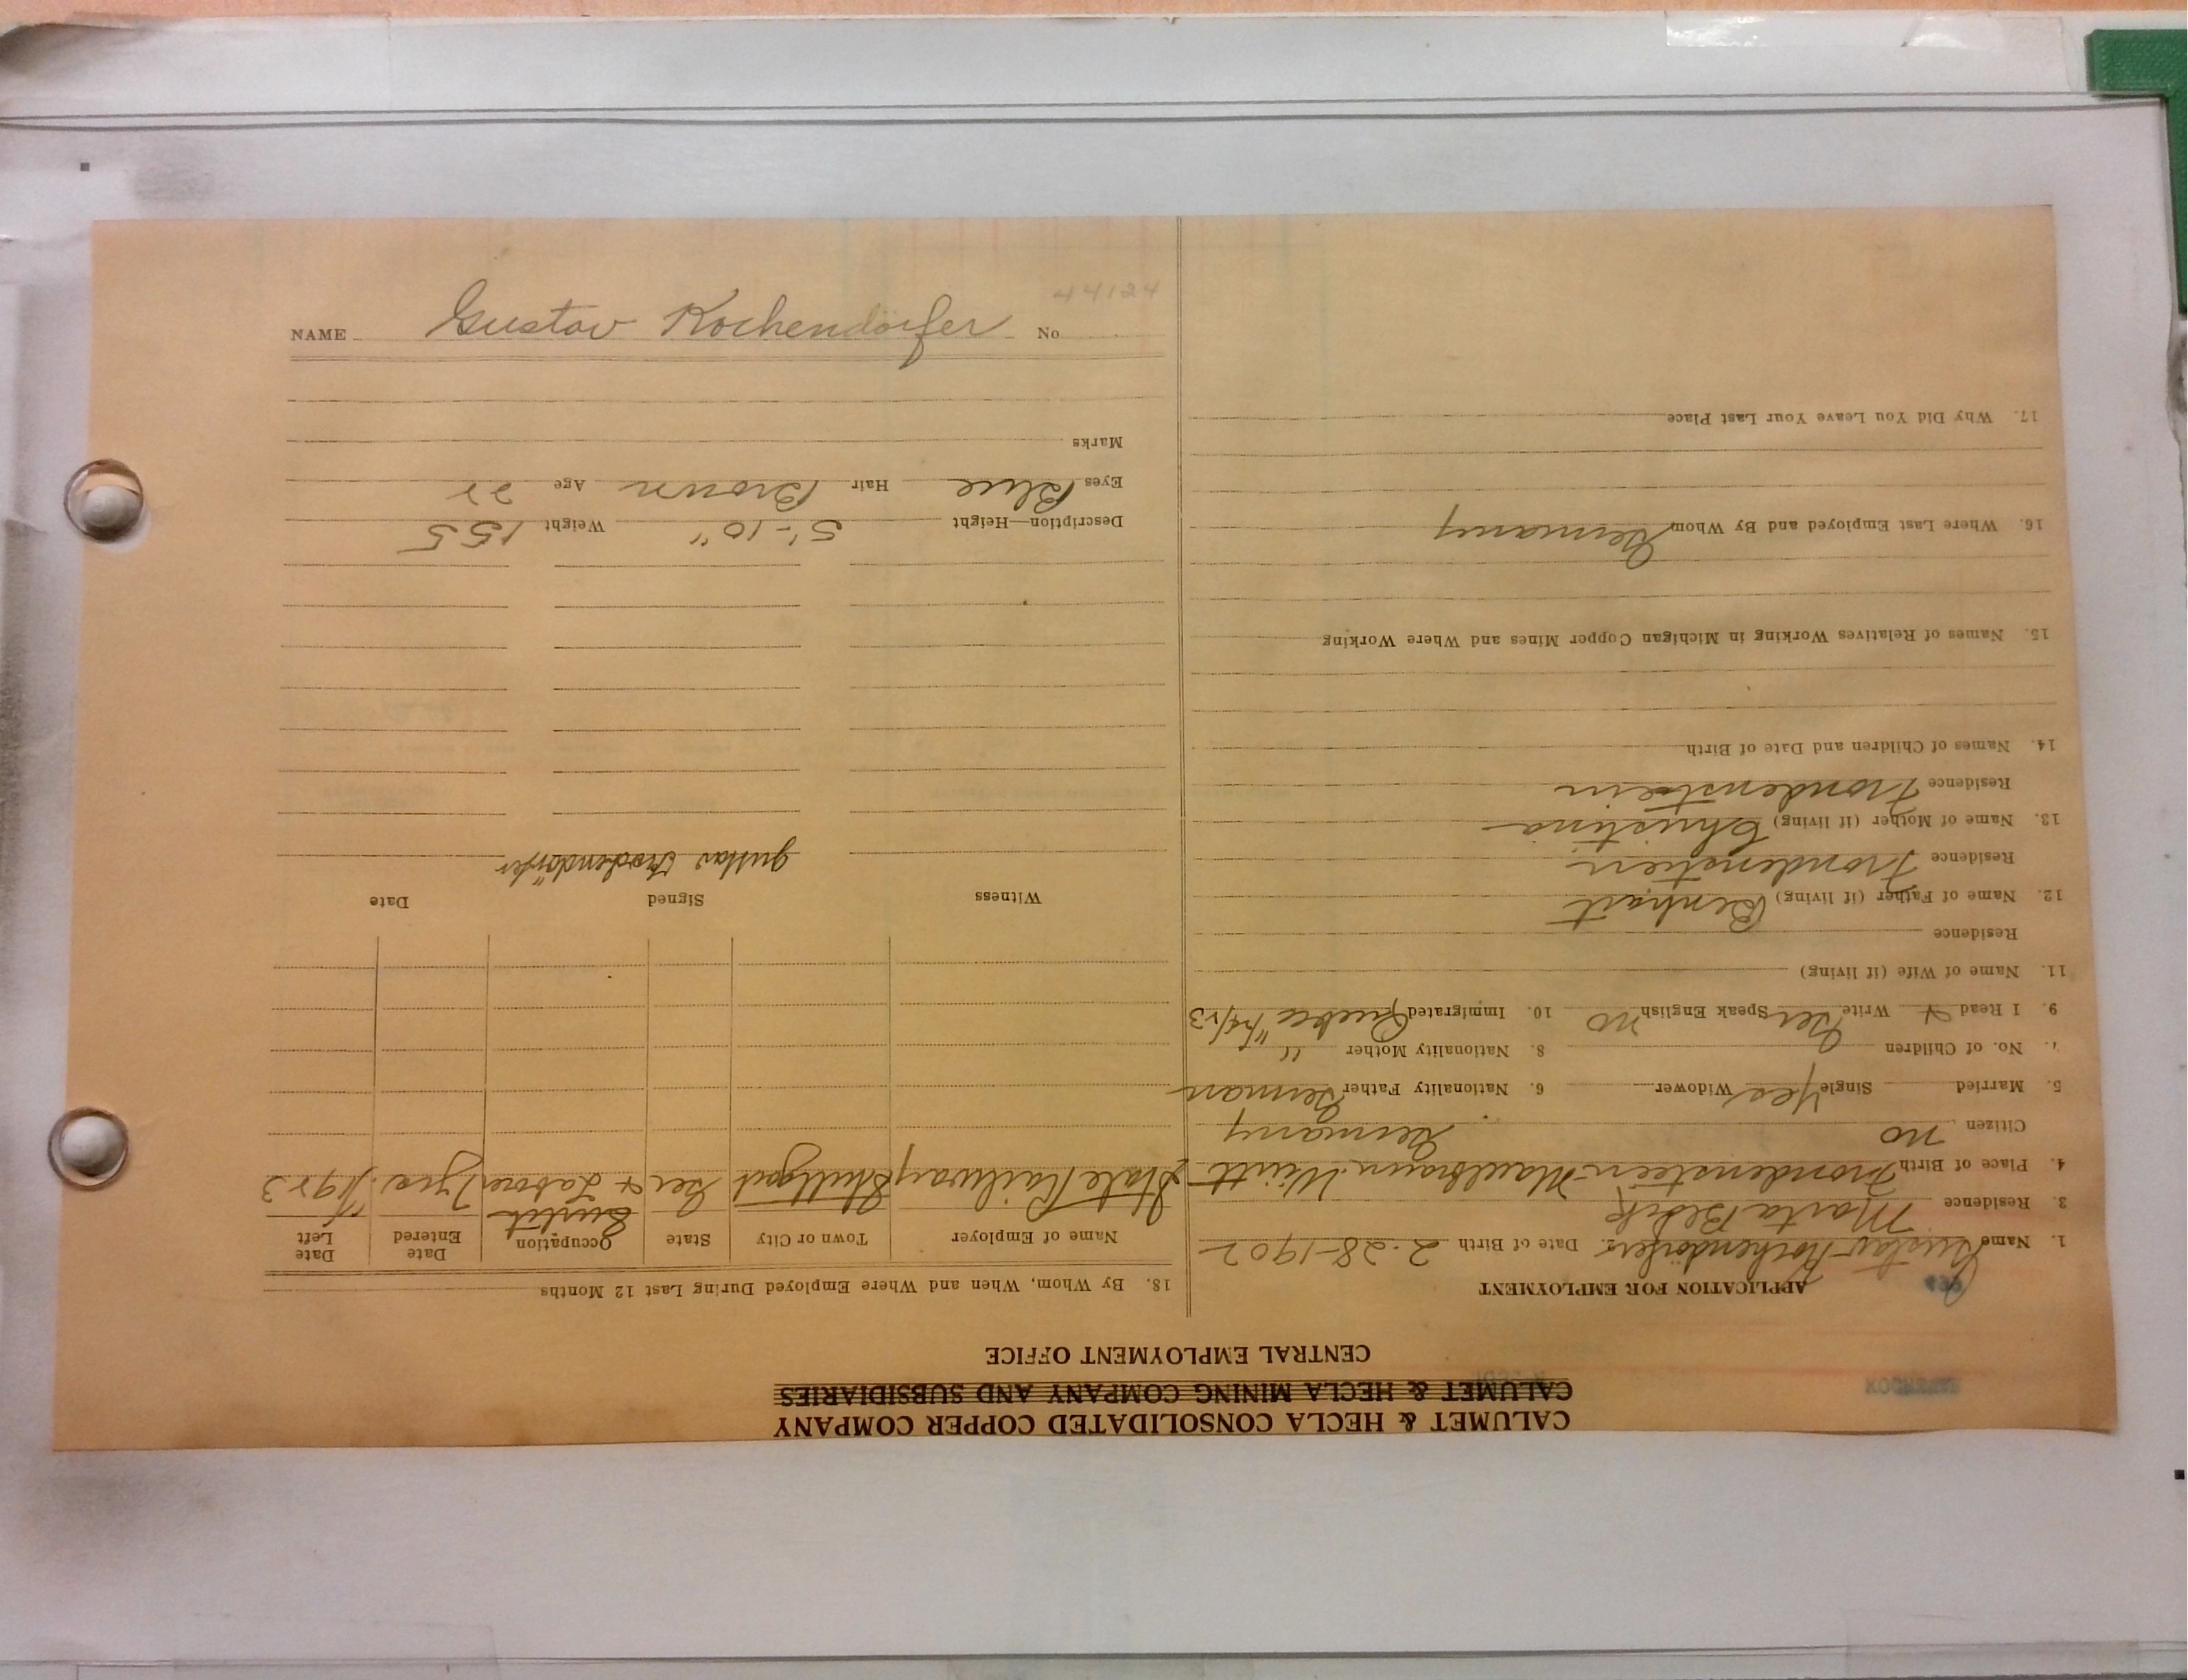 CALUMET & HECLA CONSOLIDATED COPPER COMPANY
CALUMET & HECLA MINING COMPANY AND SUBSIDIARIES
CENTRAL EMPLOYMENT OFFICE
APPLICATION FOR EMPLOYMENT
1. Name Gustav Kochendörfer Date of Birth 2-28-1902
3. Residence Marta
4. Place of Birth Frondenstein-Maulbronn-Württ
Citizen no Germany
5. Married Single Yes Widower 6. Nationality Father German
7. No. of Children 8. Nationality Mother "
9. I Read & Write Ger Speak English no 10. Immigrated Quebec 11/24/23
11. Name of Wife (if living)
Residence
12. Name of Father (if living)
Residence Frondenstein
13. Name of Mother (if living) Christina
Residence Frondenstein
14. Names of Children and Date of Birth
15. Names of Relatives Working in Michigan Copper Mines and Where Working
16. Where Last Employed and By Whom Germany
17. Why Did You Leave Your Last Place
18. By Whom, When and Where Employed During Last 12 Months
Name of Employer Town or City State Occupation Date Entered Date Left
State Railway Stuttgart Ger & Laborer 7 yrs. 1923
Witness Signed Date
Gustav Kochendörfer
Description—Height 5'-10" Weight 155
Eyes Blue Hair Brown Age 22
Marks
NAME Gustav Kochendörfer No 44124